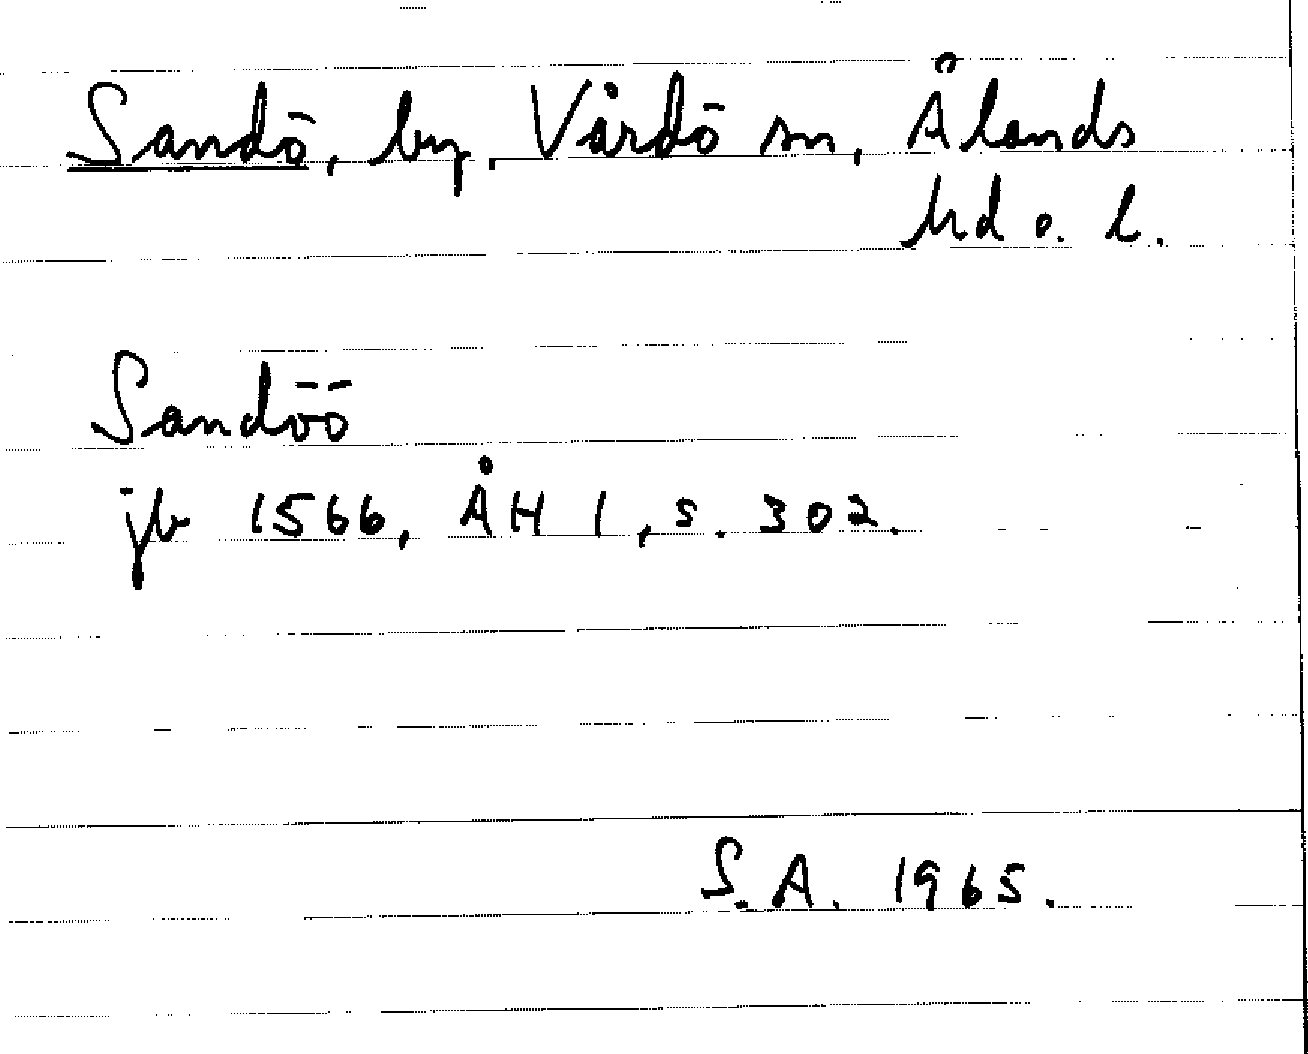 Sandö, by, Vårdö sn, Ålands
hd o. l.
Sandöö
jb 1566, ÅH 1, s. 302.
S.A. 1965.